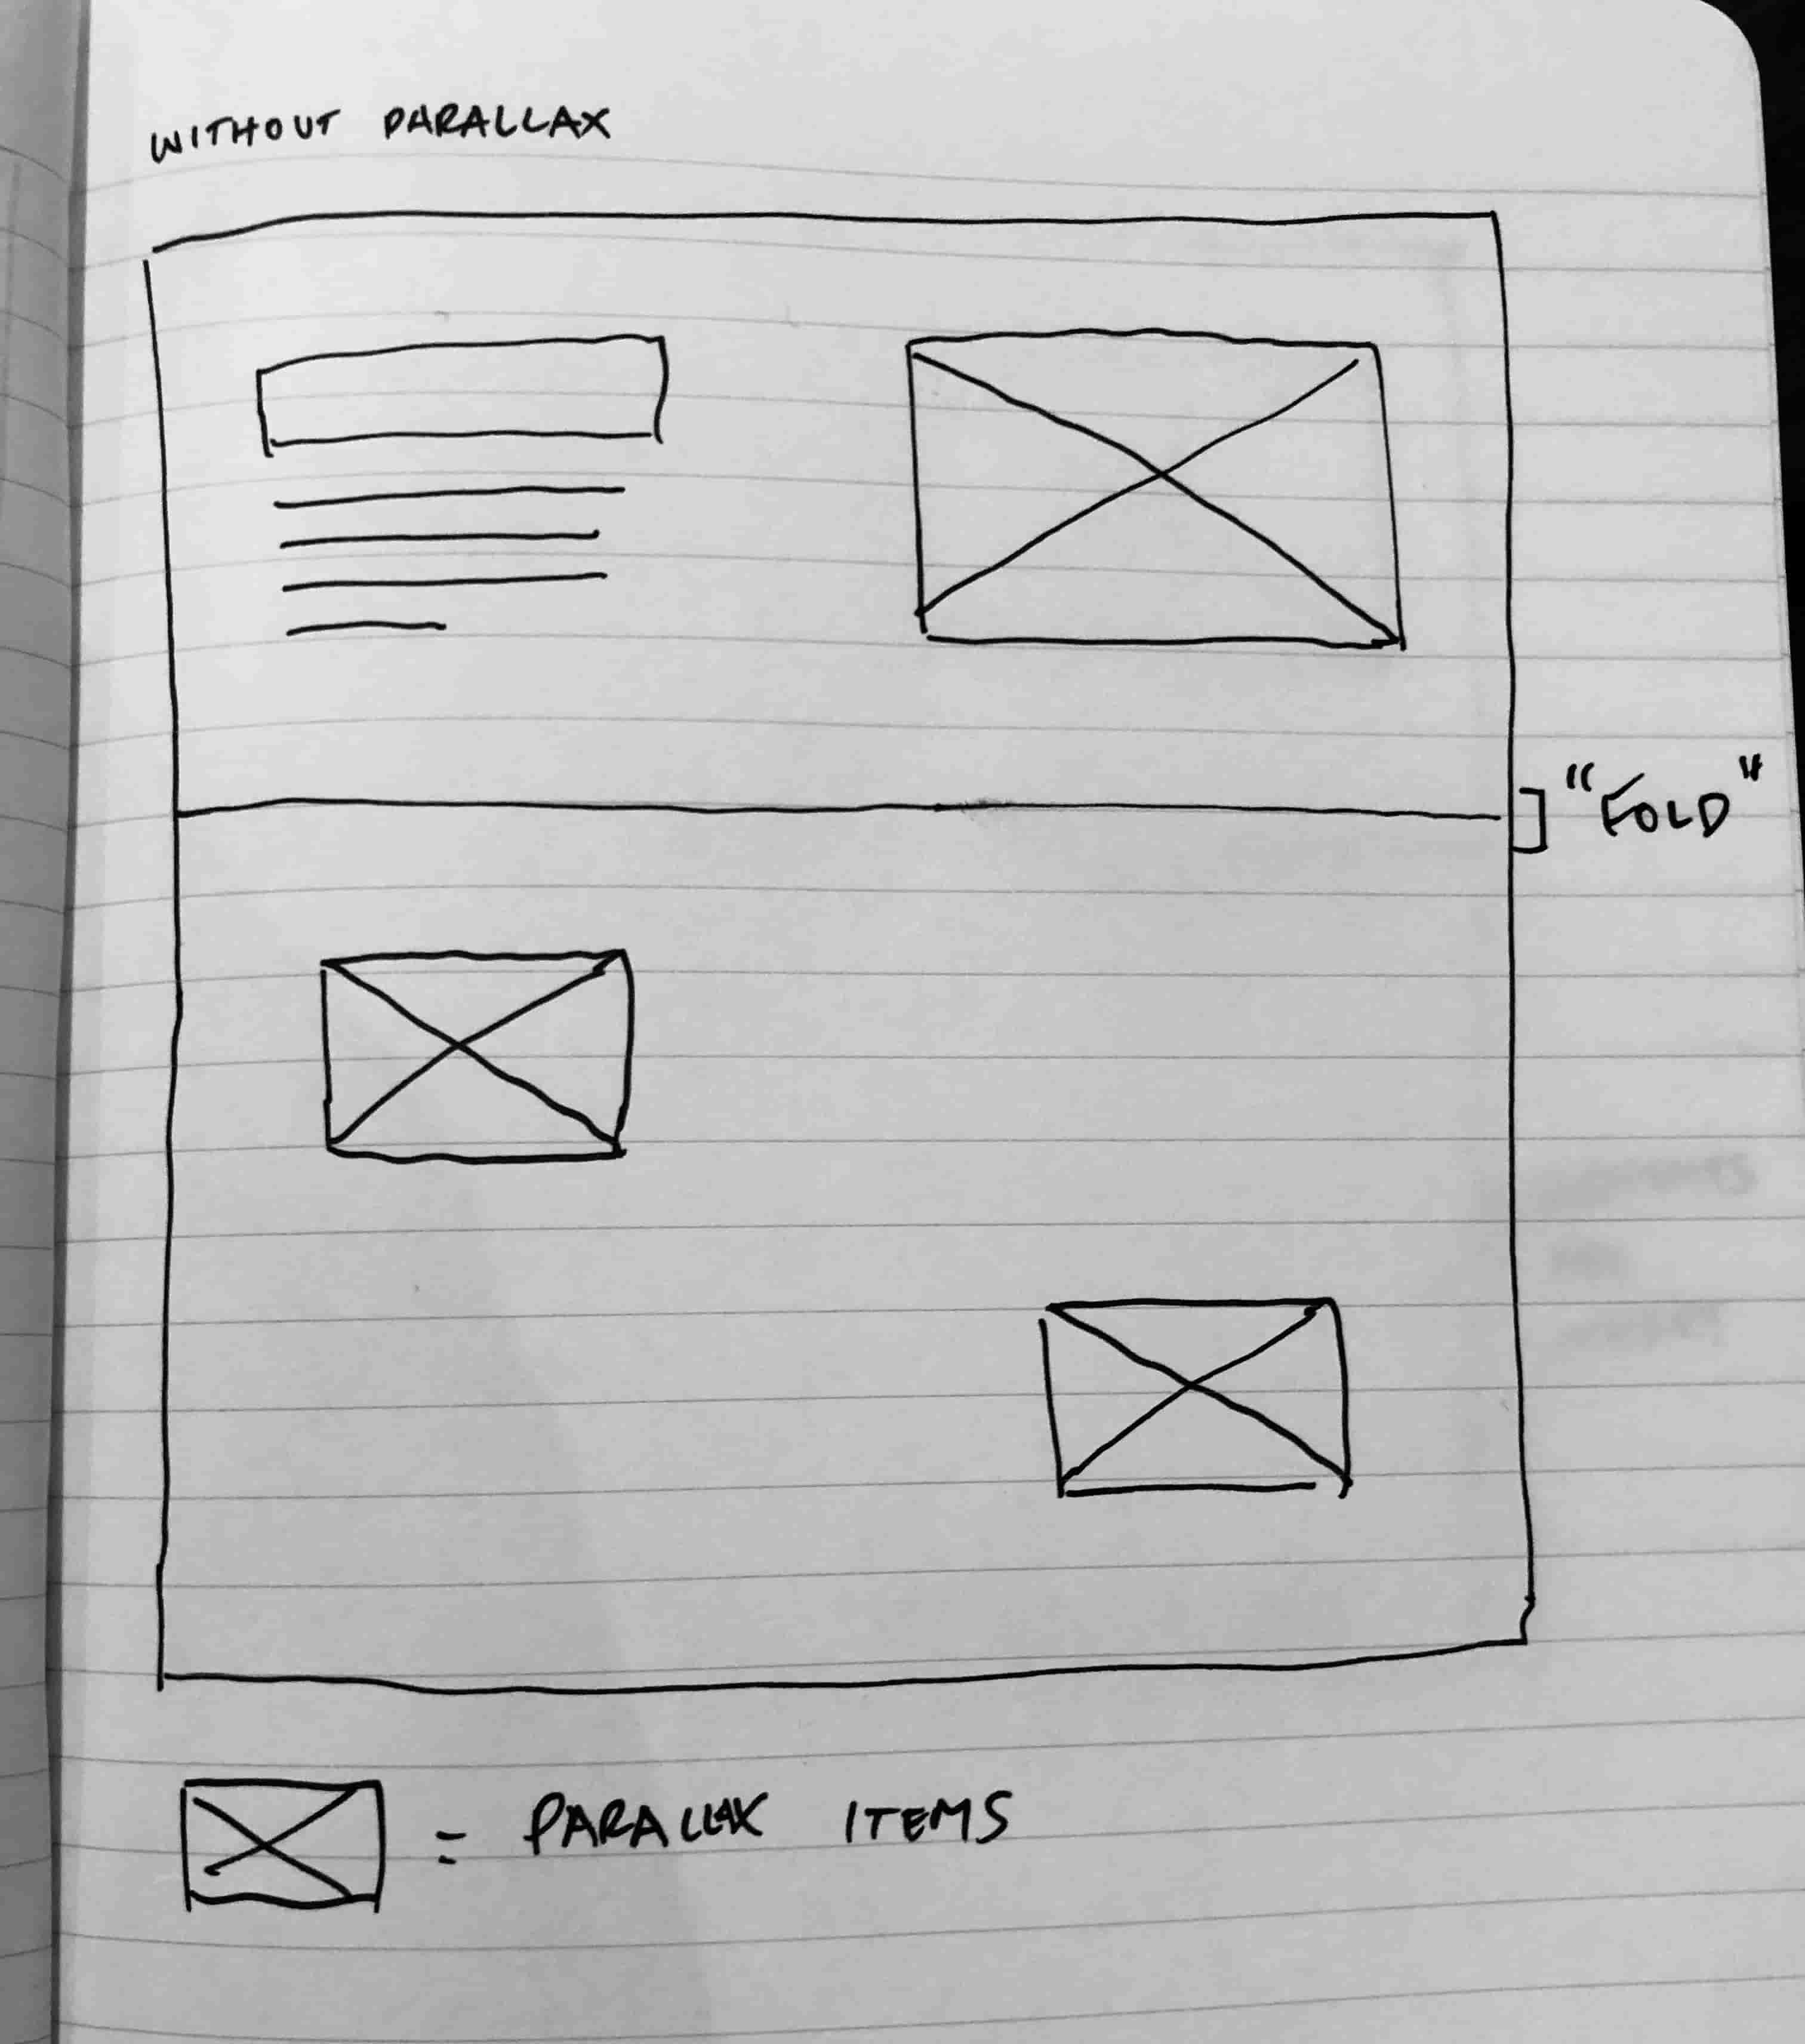 WITHOUT PARALLAX
"FOLD"
= PARALLAX ITEMS